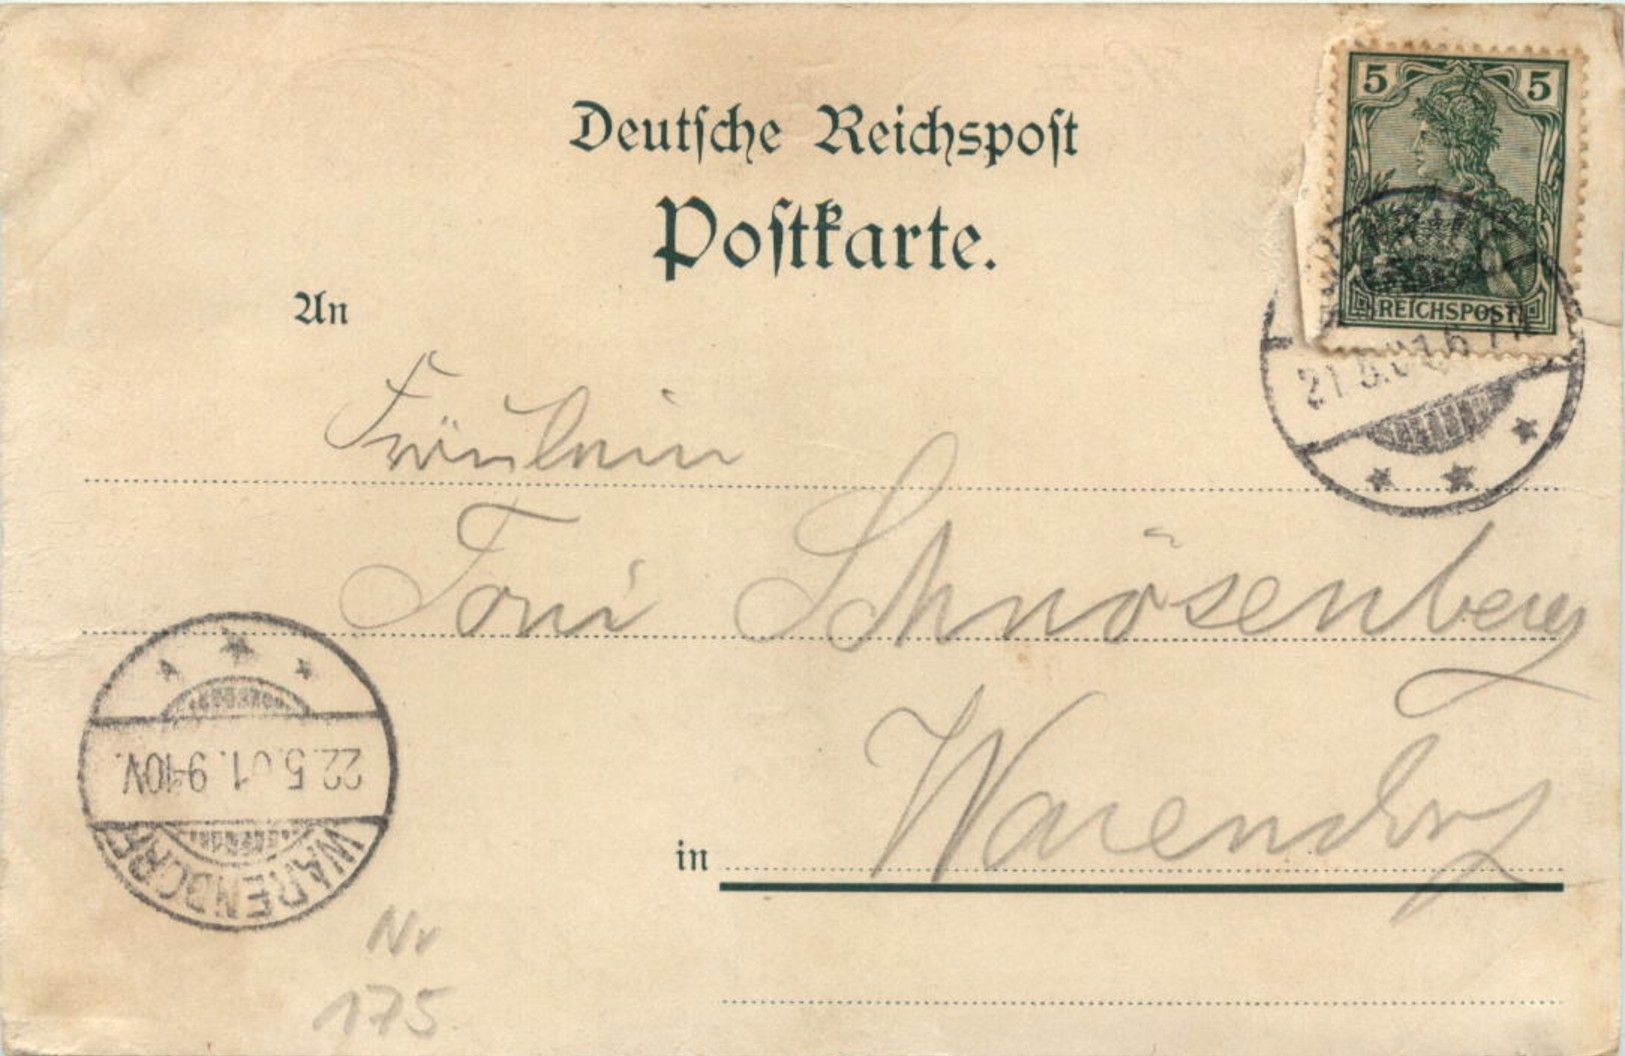 Deutsche Reichspost
Postkarte.
5 5
REICHSPOST
21.5.01.6
An
Fräulein
Toni Schnösenberg
in Warendorf
22.5.01.9-10V.
WARENDORF
Nr
175